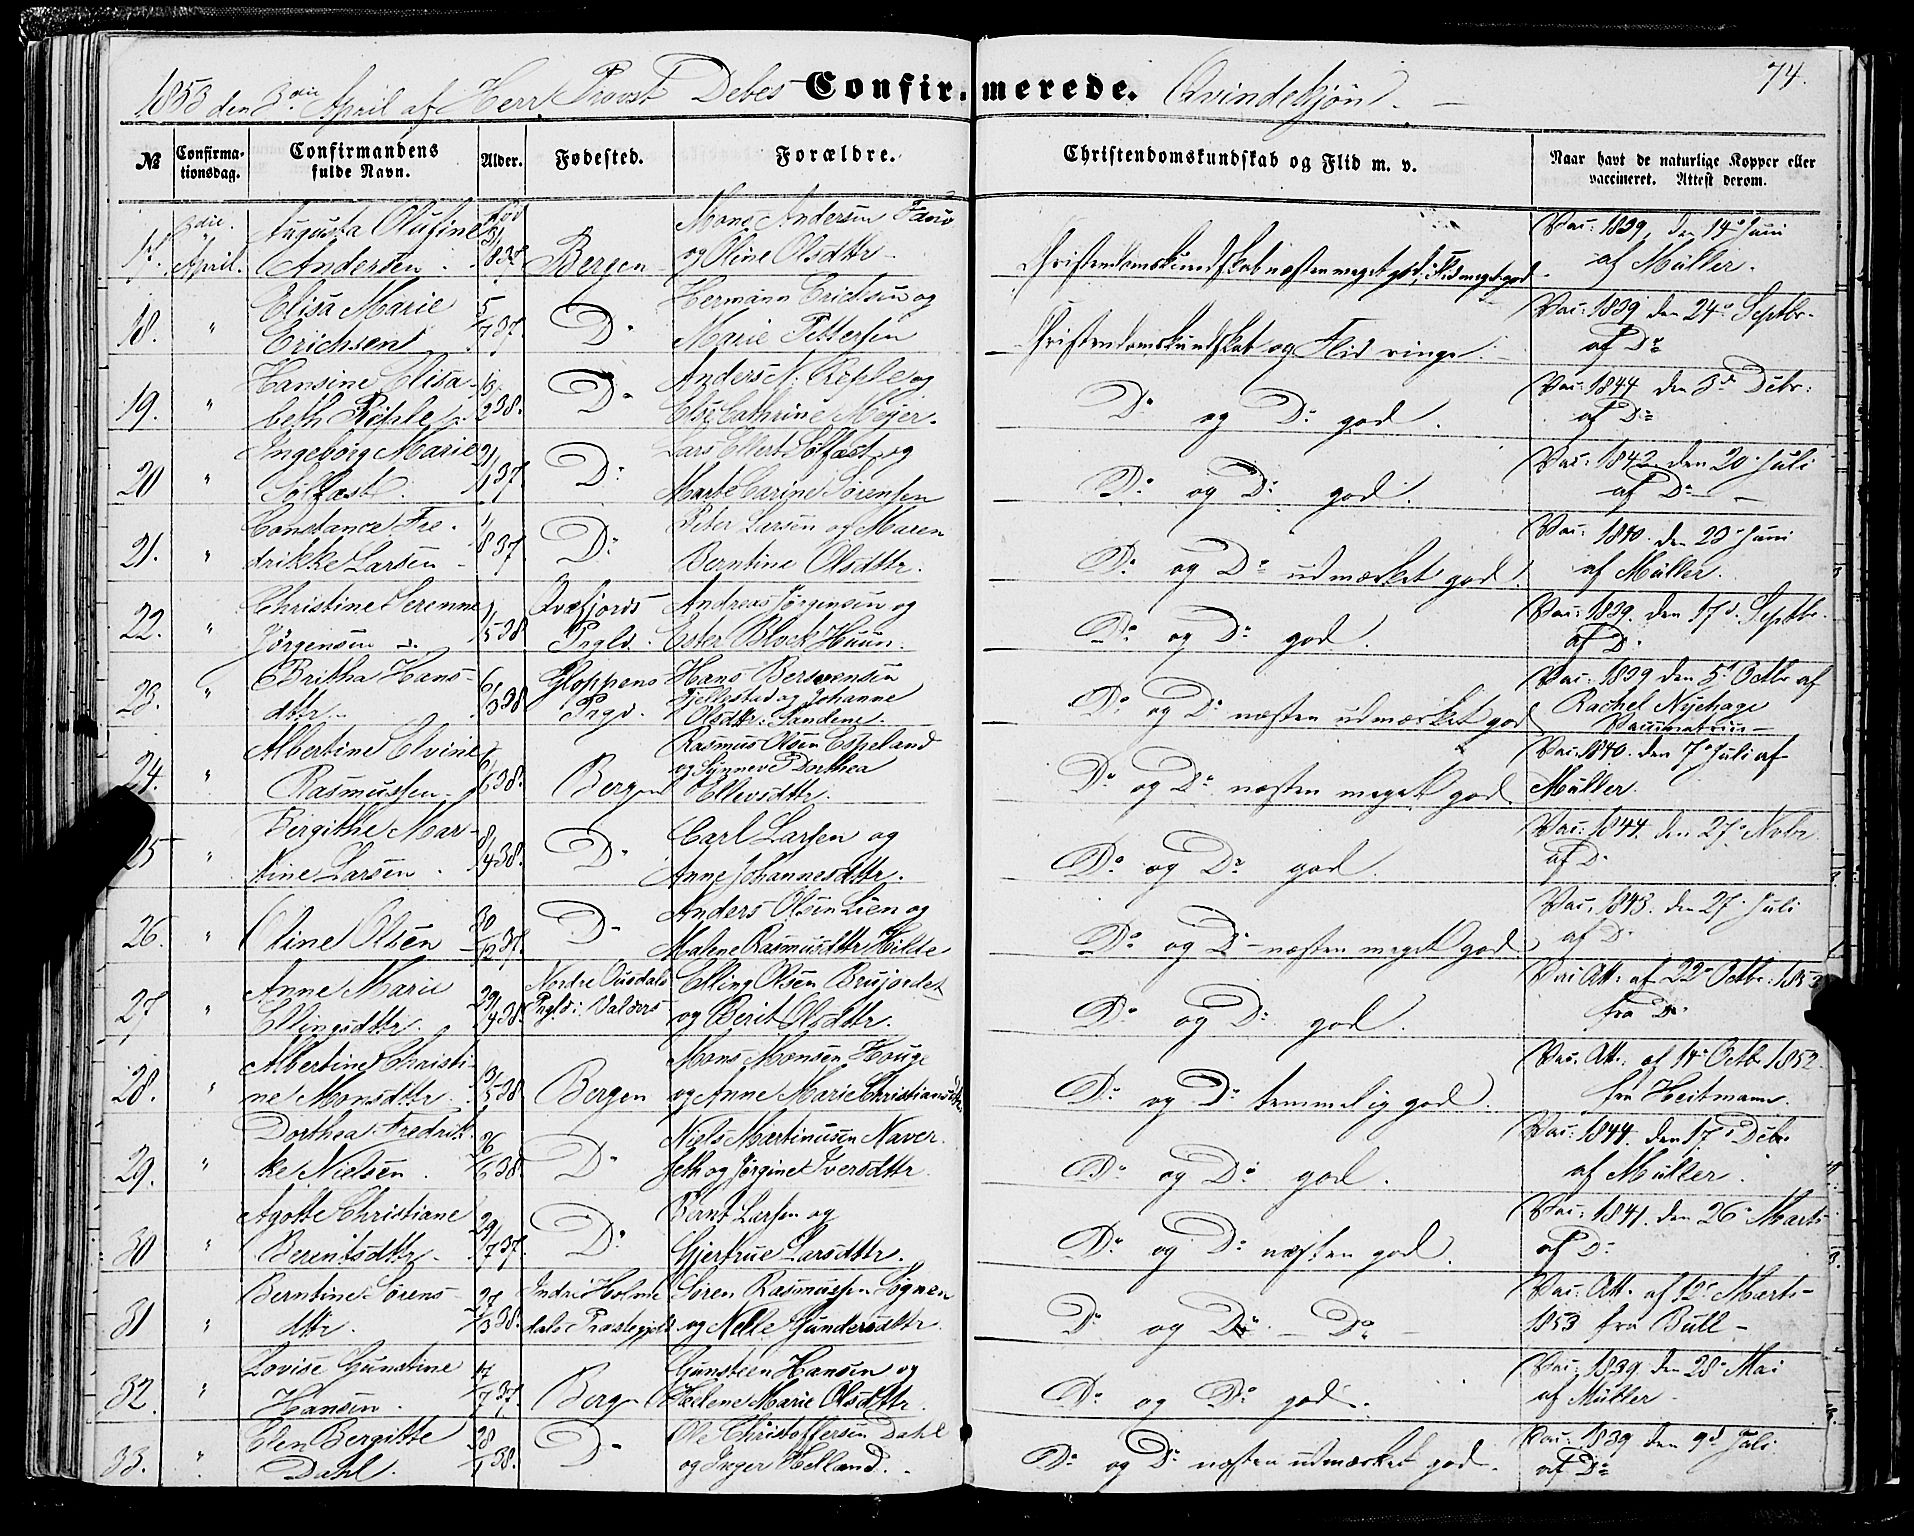 1853 den 3die April af Herr Provst Debes Confirmerede. Qvindekjøn. 74.
№ Confirmationsdag. Confirmandens fulde Navn. Alder. Fødested. Forældre. Christendomskundskab og Flid m. v. Naar havt de naturlige Kopper eller vaccineret. Attest derom.
3die Augusta Olufine Mons Andersen Vac: 1839, den 14de Juni
April. Andersen. Bergen og Oline Olsdttr. Christendomskundskab næsten meget god, Flid meget god. af Müller.
Elisa Marie 5/ Hermann Erichsen og Vac: 1839 den 24de Septbr.
18. " Erichsen 37. Do Marie Pettersen Christendomskundskab og Flid ringe. af Do
Hansine Elisa- Anders N. og Vac: 1844 den 3de Debr:
19. " beth 38. Do Else Cathrine Mejer. Do og Do god. af Do
Ingeborg Marie 21/ Lars Ellert Sølfæst og Vac: 1842 den 20de Juli
20 " Sølfæst. 1 37. Do Marte Carine Sørensen Do og Do god. af Do
Constance Fre- 1/ Peter Larsen og Maren Vac: 1840. den 23de Juni
21. " drikke Larsen 8 37 Do Berntine Olsdttr. Do og Do udmærket god. af Müller.
Christine Serenne 1/ Qvæfjords Andreas Jørgensen og Vac: 1839. den 17de Septbr.
22. " Jørgensen 5 38 Prgld. Ester Block Huun. Do og Do god. af Do
Britha Hans- 6/ Gloppens Hans Bersvensen Vac: 1839 den 5te Octbr af
23. " dttr. 3 38 Prgd. Fjellestad og Johanne Olsdttr. Sandene. Do og Do næsten udmærket god Rachel Nyehage
Albertine Elvine 6/ Rasmus Olsen Espeland Vac: 1840. den 7de Juli af
24. " Rasmussen. 1 38. Bergen og Synneve Dorthea Ellevsdttr. Do og Do næsten meget god. Müller.
Bergithe Mar- 8/ Carl Larsen og Vac: 1844. den 27de Novbr
25 " tine Larsen. 4 38. Do Anne Johannesdttr. Do og Do god. af Do
30/ Anders Olsen Lien og Vac. 1843. den 27de Juli
26. " Oline Olsen 12 37. Do Malene Rasmusdttr Hilde Do og Do næsten meget god af Do
Anne Marie 29/ Nordre Elling Olsen Brujordet Vac: Att: af 22de Octbr: 1853
27 " Ellingsdttr. 4 38. Prgld: i Valders og Berit Olsdttr. Do og Do god. fra Do
Albertine Christi- 13/ Mons Monsen Houge Vac. Att: af 14de Octb 1852.
28. " ne Monsdttr. 5 38 Bergen og Anne Marie Christiansdttr Do og Do temmelig god. fra Heitmann.
Dorthea Fredrik- 26/ Niels Martinusen Naver- Vac: 1844. den 17de Debr
29. " ke Nielsen. 6 38. Do seth og Jørgine Iversdttr Do og Do god. af Müller.
Agotte Christiane 29/ Bernt Larsen og Vac: 1841. den 26de Marts
30 " Berentsdttr. 7 37. Do Gjertrue Larsdttr. Do og Do næsten god. af Do
Berntine Sørens- Indre Holme- Søren Rasmussen Søgnen Vac. Att. af 12te Marts
31 " dttr. 3 38. dals Præstegjeld og Nelle Gundersdttr. Do og Do - Do 1853 fra Bull
Lovise Gunstine 17/ Gunsteen Hansen og Vac: 1839. den 28de Mai
32. " Hansen. 7 37. Bergen Helene Marie Olsdttr. Do og Do god. af Müller.
Elen Bergitte 28/ Ole Christoffersen Dahl Vac. 1839 den 9de Juli
33. " Dahl. 1 38. Do og Inger Helland. Do og Do næsten udmærket god. af Do